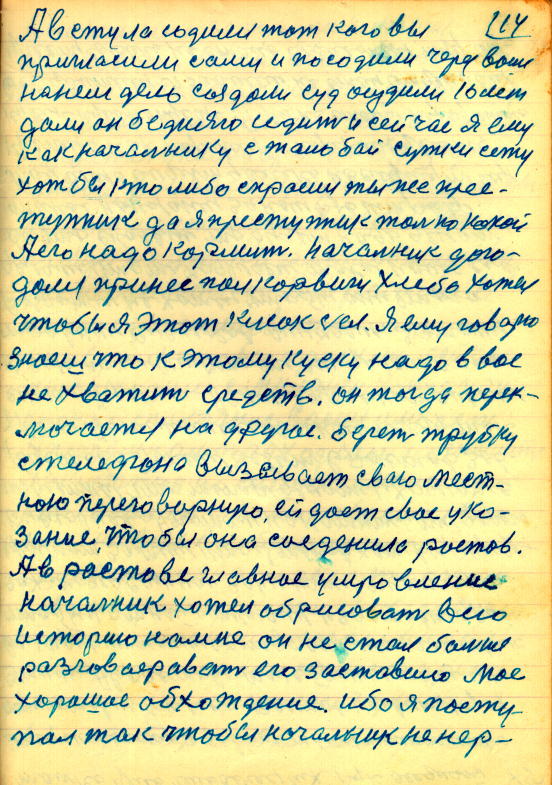 114
А вступа содили тот кого вы
пригласили сами и посодили через ваш
нанем дель создали суд осудили 10 лет
дали он бедняго седит и сейчас я ему
как начальнику с тало бай сутки сету
хотбы ктолибо спросил ты же прес-
тупник да я преступник только какой
Аего надо кормит. Начальник дого-
дался принес пол корвиги хлеба хотел
чтобы я этот кусок сел. Я ему говарю
знаеш что к этому куску надо в вас
не хватит средств. он тогда перек-
лючается на другое. берет трубку
стелефона вызывает сваю мест-
ною переговорную, ей дает свае ука-
зание, чтобы она соеденила ростов.
А в растове главное упровление
начальник хотел обрисоват всю
историю намне он не стал больше
разговаереват его заставило мое
хорошае обхождение. ибо я посту
пал так чтобы начальник не нер-